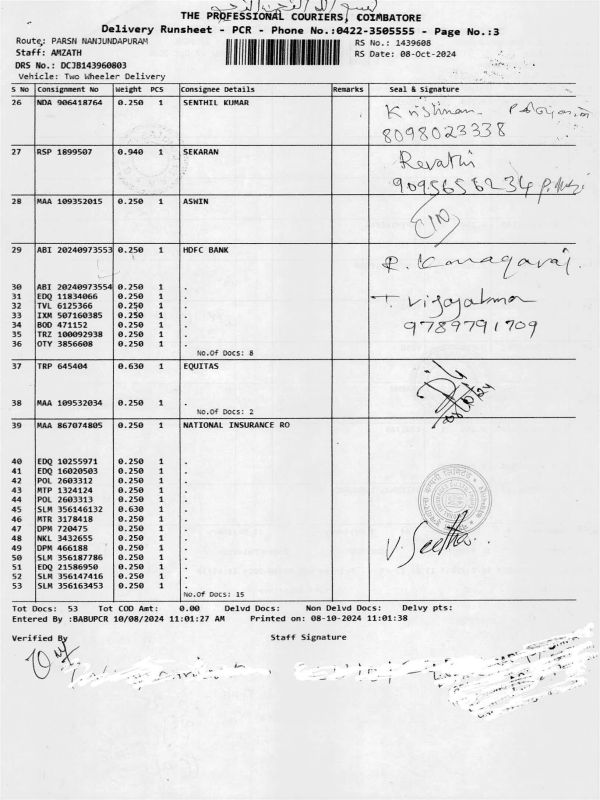 THE PROFESSIONAL COURIERS, COIMBATORE
Delivery Runsheet - PCR - Phone No.:0422-3505555 - Page No.:3
Route: PARSN NANJUNDAPURAM
RS No.: 1439608
Staff: AMZATH
RS Date: 08-Oct-2024
DRS No.: DCJB143960803
Vehicle: Two Wheeler Delivery
S No Consignment No Weight PCS Consignee Details Remarks Seal & Signature
26 NDA 906418764 0.250 1 SENTHIL KUMAR
Krishnan
8098023338
27 RSP 1899507 0.940 1 SEKARAN
Revathi
9095656234
28 MAA 109352015 0.250 1 ASWIN
29 ABI 20240973553 0.250 1 HDFC BANK
R. Kanagaraj.
30 ABI 20240973554 0.250 1 .
31 EDQ 11834066 0.250 1 .
32 TVL 6125366 0.250 1 .
T. Vijayakumar
33 IXM 507160385 0.250 1 .
34 BOD 471152 0.250 1 .
9789791709
35 TRZ 100092938 0.250 1 .
36 OTY 3856608 0.250 1 .
No.Of Docs: 8
37 TRP 645404 0.630 1 EQUITAS
38 MAA 109532034 0.250 1 .
08/10/24
No.Of Docs: 2
39 MAA 867074805 0.250 1 NATIONAL INSURANCE RO
40 EDQ 10255971 0.250 1 .
41 EDQ 16020503 0.250 1 .
42 POL 2603312 0.250 1 .
43 MTP 1324124 0.250 1 .
44 POL 2603313 0.250 1 .
45 SLM 356146132 0.630 1 .
46 MTR 3178418 0.250 1 .
47 DPM 720475 0.250 1 .
48 NKL 3432655 0.250 1 .
49 DPM 466188 0.250 1 .
V. Seetha
50 SLM 356187786 0.250 1 .
51 EDQ 21586950 0.250 1 .
52 SLM 356147416 0.250 1 .
53 SLM 356163453 0.250 1 .
No.Of Docs: 15
Tot Docs: 53 Tot COD Amt: 0.00 Delvd Docs: Non Delvd Docs: Delvy pts:
Entered By :BABUPCR 10/08/2024 11:01:27 AM Printed on: 08-10-2024 11:01:38
Verified By Staff Signature